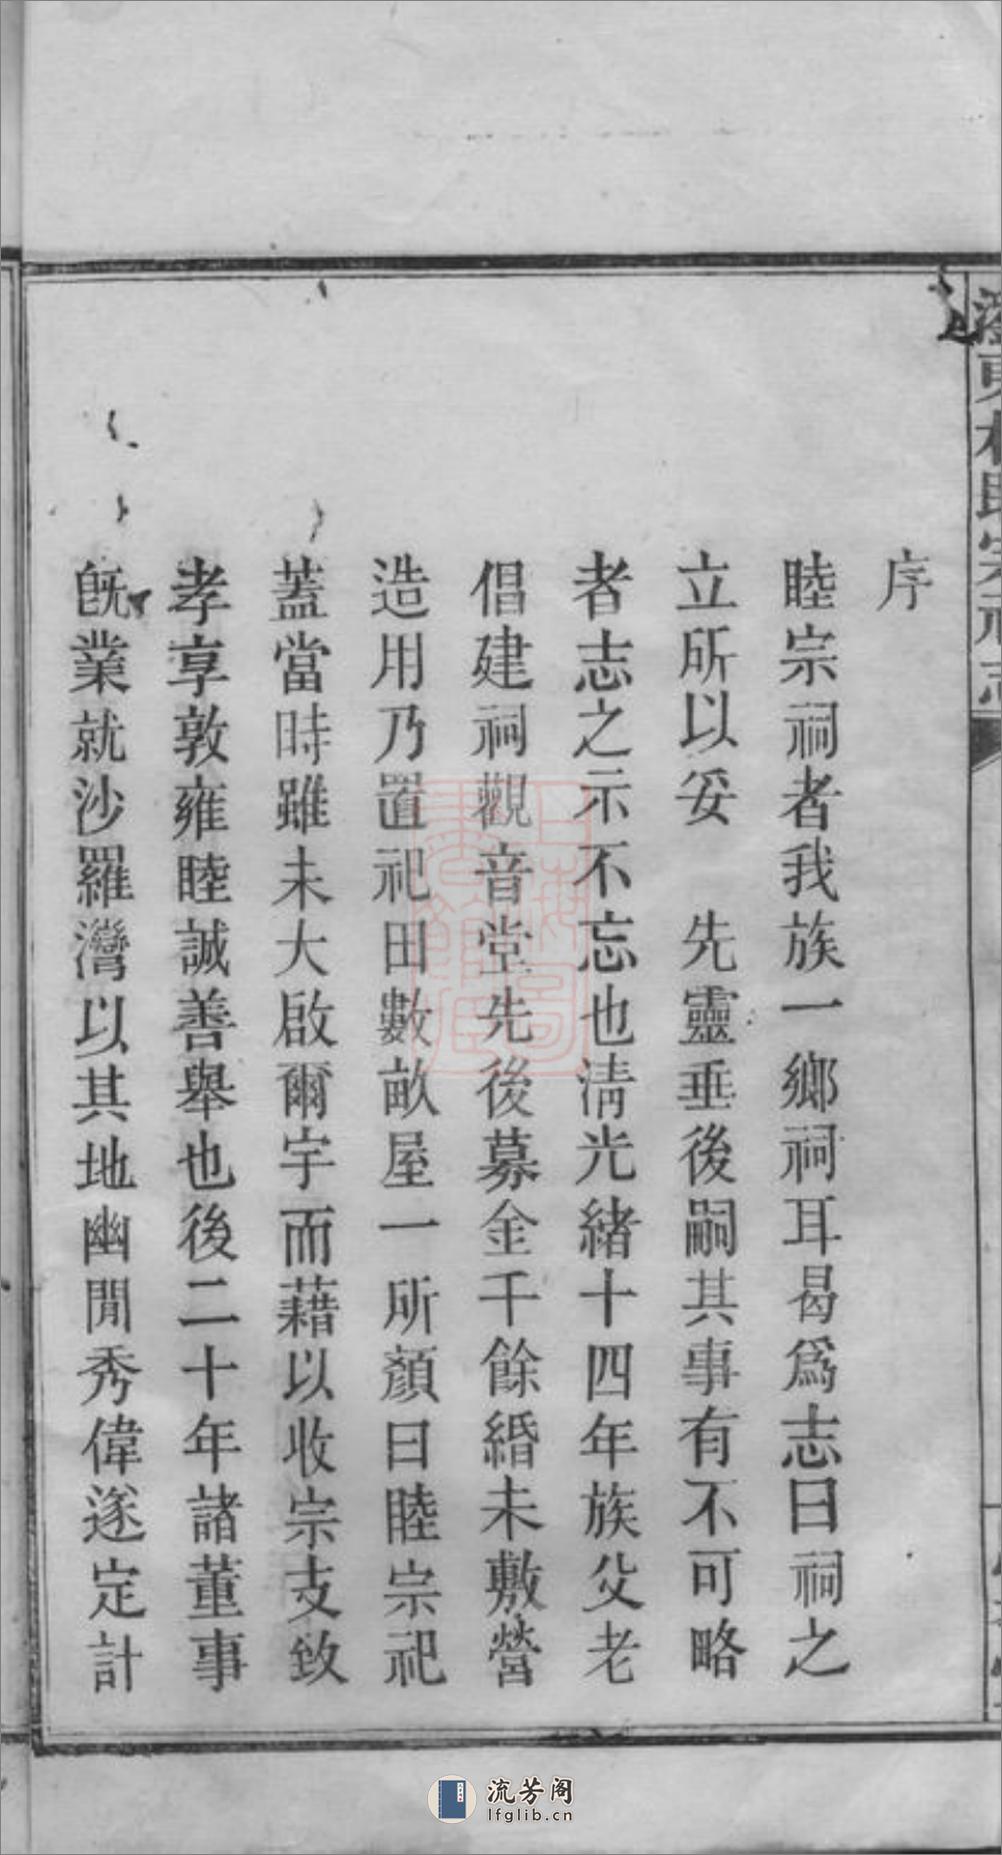 序
睦宗祠者我族一鄉祠耳曷爲志曰祠之
立所以妥　先靈垂後嗣其事有不可略
者志之示不忘也清光緒十四年族父老
倡建祠觀音堂先後募金千餘緡未敷營
造用乃置祀田數畝屋一所顏曰睦宗祀
蓋當時雖未大啟爾宇而藉以收宗支致
孝享敦雍睦誠善舉也後二十年諸董事
旣業就沙羅灣以其地幽閒秀偉遂定計
上海圖書館藏
流芳阁
lfglib.cn